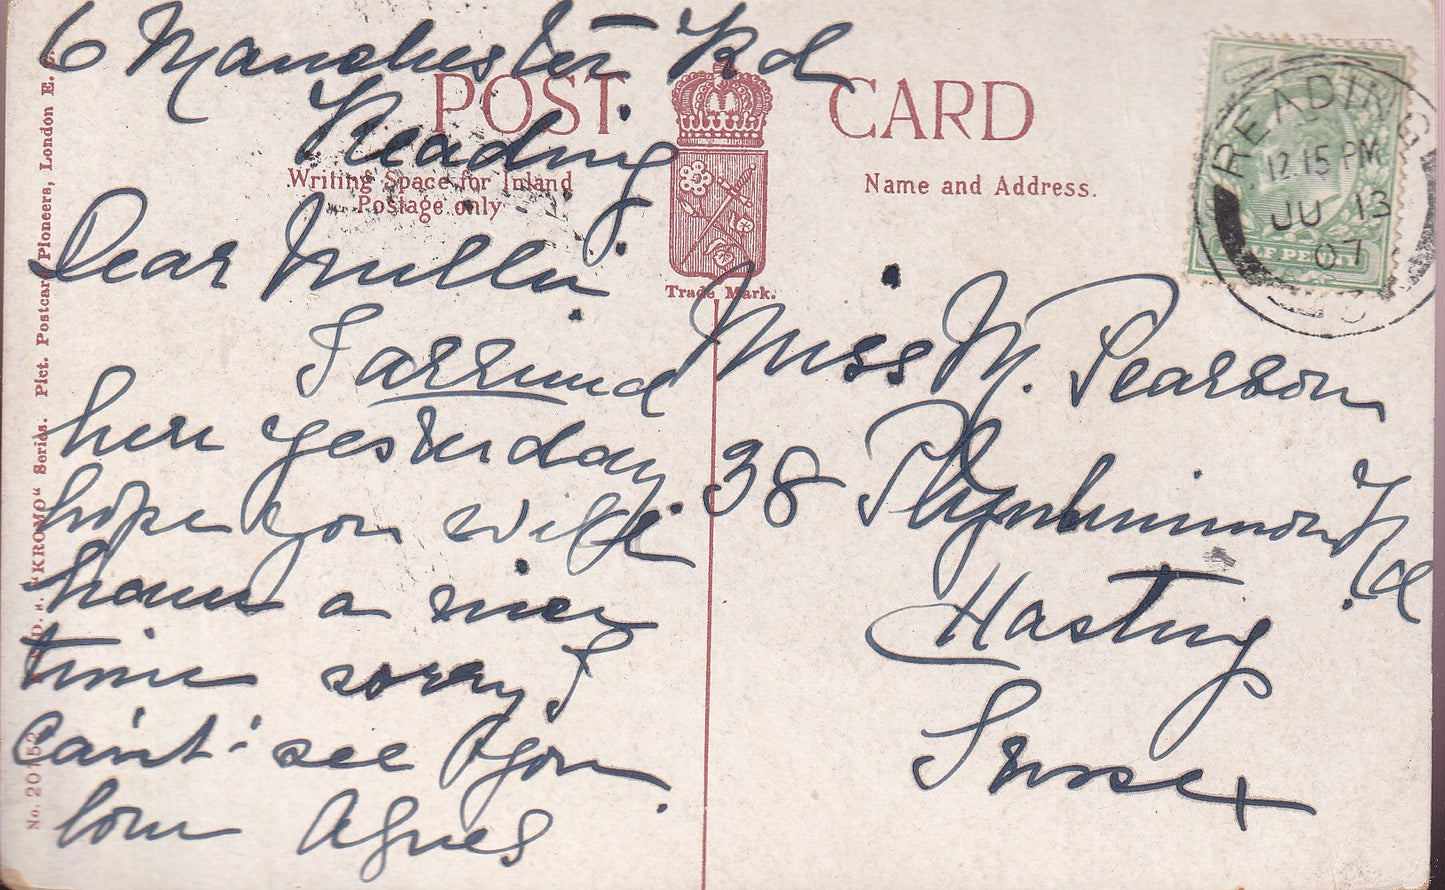 6 Manchester Rd
Reading
POST CARD
Writing Space for Inland
Postage only
Name and Address.
Trade Mark.
Dear Millie
I arrived
here yesterday
hope you will
have a nice
time sorry I
can't see you
love Agnes
Miss M. Pearson
38 Plynlimmon Rd
Hastings
Sussex
READING
12.15 PM
JU 13
07
HALF PENNY
"KROMO" Series. Pict. Postcard Pioneers, London E.C.
No. 20152